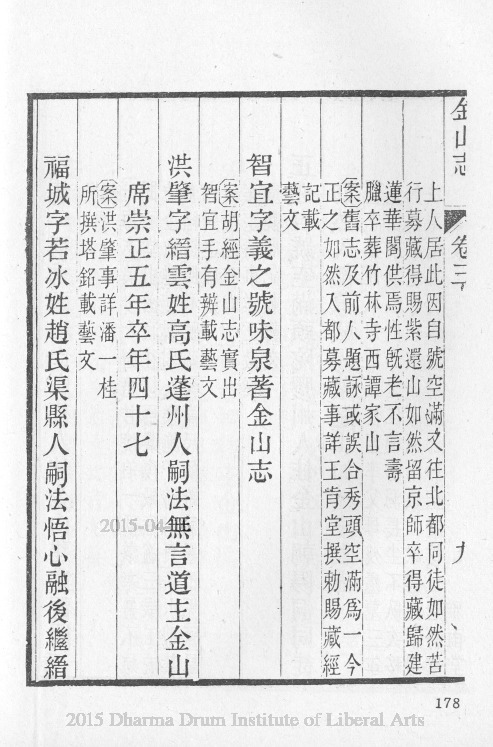 金山志
卷三
九
上人居此因自號空滿又往北都同徒如然苦
行募藏得賜紫還山如然留京師卒得藏歸建
蓮華閣供焉性旣老不言壽
臘卒葬竹林寺西譚家山
案舊志及前人題詠或誤合秀頭空滿爲一今
正之如然入都募藏事詳王肯堂撰勅賜藏經
記載
藝文
智宜字義之號味泉著金山志
案胡經金山志實出
智宜手有辨載藝文
洪肇字縉雲姓高氏蓬州人嗣法無言道主金山
席崇正五年卒年四十七
案洪肇事詳潘一桂
所撰塔銘載藝文
福城字若冰姓趙氏渠縣人嗣法悟心融後繼縉
178
2015 Dharma Drum Institute of Liberal Arts